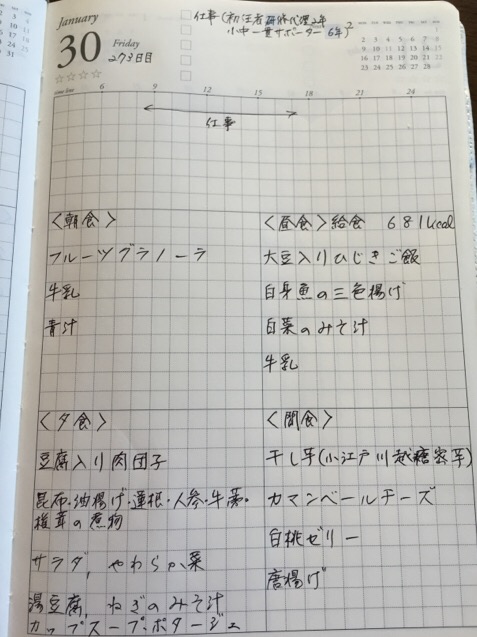 January
30
Friday
273日目
仕事(初任者研修代理2年
小中一貫サポーター 6年)
6 9 12 15 18 21 24
仕事
<朝食>
フルーツグラノーラ
牛乳
青汁
<昼食>給食 681kcal
大豆入りひじきご飯
白身魚の三色揚げ
白菜のみそ汁
牛乳
<夕食>
豆腐入り肉団子
昆布・油揚げ・蓮根・人参・牛蒡・
椎茸の煮物
サラダ, やわらか菜
湯豆腐, ねぎのみそ汁
カップスープ・ポタージュ
<間食>
干し芋(小江戸川越糖蜜芋)
カマンベールチーズ
白桃ゼリー
唐揚げ